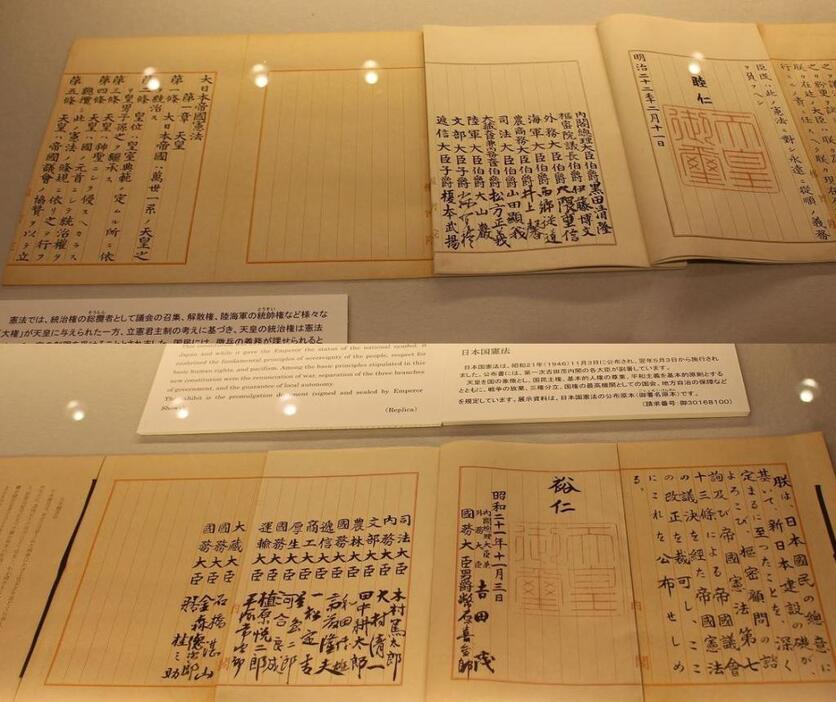 臣民ハ此ノ憲法ニ對シ永遠ニ從順ノ義務
ヲ負フヘシ
睦仁
天皇御璽
明治二十二年二月十一日
内閣總理大臣伯爵黒田清隆
樞密院議長伯爵伊藤博文
外務大臣伯爵大隈重信
海軍大臣伯爵西郷從道
農商務大臣伯爵井上馨
司法大臣伯爵山田顯義
大藏大臣兼内務大臣伯爵松方正義
陸軍大臣伯爵大山巖
文部大臣子爵森有禮
遞信大臣子爵榎本武揚
大日本帝國憲法
第一章 天皇
第一條 大日本帝國ハ萬世一系ノ天皇之
ヲ統治ス
第二條 皇位ハ皇室典範ノ定ムル所ニ依
リ皇男子孫之ヲ繼承ス
第三條 天皇ハ神聖ニシテ侵スヘカラス
第四條 天皇ハ國ノ元首ニシテ統治權ヲ
總攬シ此ノ憲法ノ條規ニ依リ之ヲ行フ
第五條 天皇ハ帝國議會ノ協賛ヲ以テ立
憲法では、統治権の総攬者として議会の召集、解散権、陸海軍の統帥権など様々な
「大権」が天皇に与えられた一方、立憲君主制の考えに基づき、天皇の統治権は憲法
Japan and while it gave the Emperor the status of the national symbol, it
confirmed the fundamental principles of sovereignty of the people, respect for
basic human rights, and pacifism. Among the basic principles stipulated in this
new constitution were the renunciation of war, separation of the three branches
of government, and the guarantee of local autonomy.
The exhibit is the promulgation document (signed and sealed by Emperor
Showa).
(Replica)
日本国憲法
日本国憲法は、昭和21年(1946)11月3日に公布され、翌年5月3日から施行され
ました。公布書には、第一次吉田茂内閣の各大臣が副署しています。
天皇を国の象徴とし、国民主権、基本的人権の尊重、平和主義を基本的原則とする
とともに、戦争の放棄、三権分立、国権の最高機関としての国会、地方自治の保障など
を規定しています。展示資料は、日本国憲法の公布原本(御署名原本)です。
(請求番号・御30168100)
朕は、日本國民の總意に
基いて、新日本建設の礎が、
定まるに至つたことを、深く
よろこび、樞密顧問の諮
詢及び帝國憲法第七
十三條による帝國議會
の議決を經た帝國憲法
の改正を裁可し、ここ
にこれを公布せしめ
る。
裕仁
天皇御璽
昭和二十一年十一月三日
内閣總理大臣兼
外務大臣 吉田茂
國務大臣 男爵幣原喜重郎
司法大臣 木村篤太郎
内務大臣 大村清一
文部大臣 田中耕太郎
農林大臣 和田博雄
國務大臣 斎藤隆夫
遞信大臣 一松定吉
商工大臣 星島二郎
厚生大臣 河合良成
國務大臣 植原悦二郎
運輸大臣 平塚常次郎
大藏大臣 石橋湛山
國務大臣 金森德次郎
國務大臣 膳桂之助